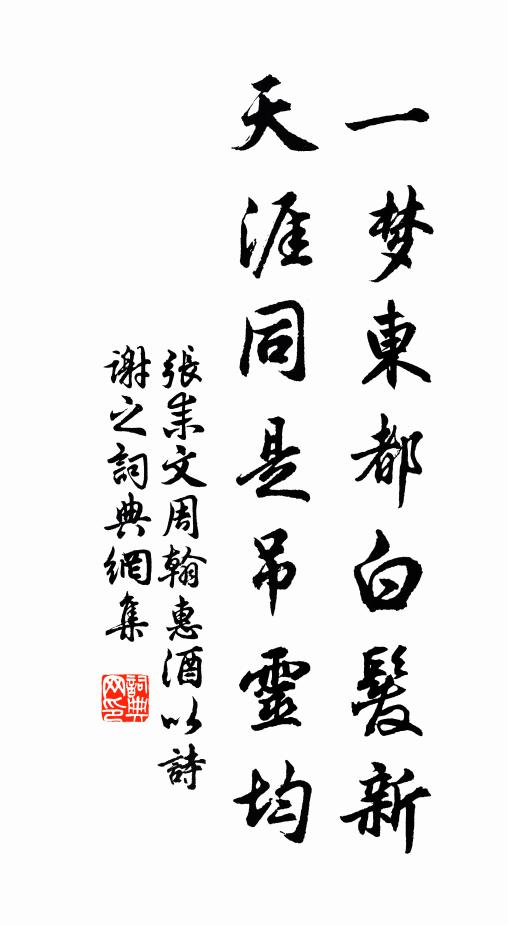 一梦東都白髮新
天涯同是吊靈均
張耒文周翰惠酒以詩
謝之詞典網集
詞典网印